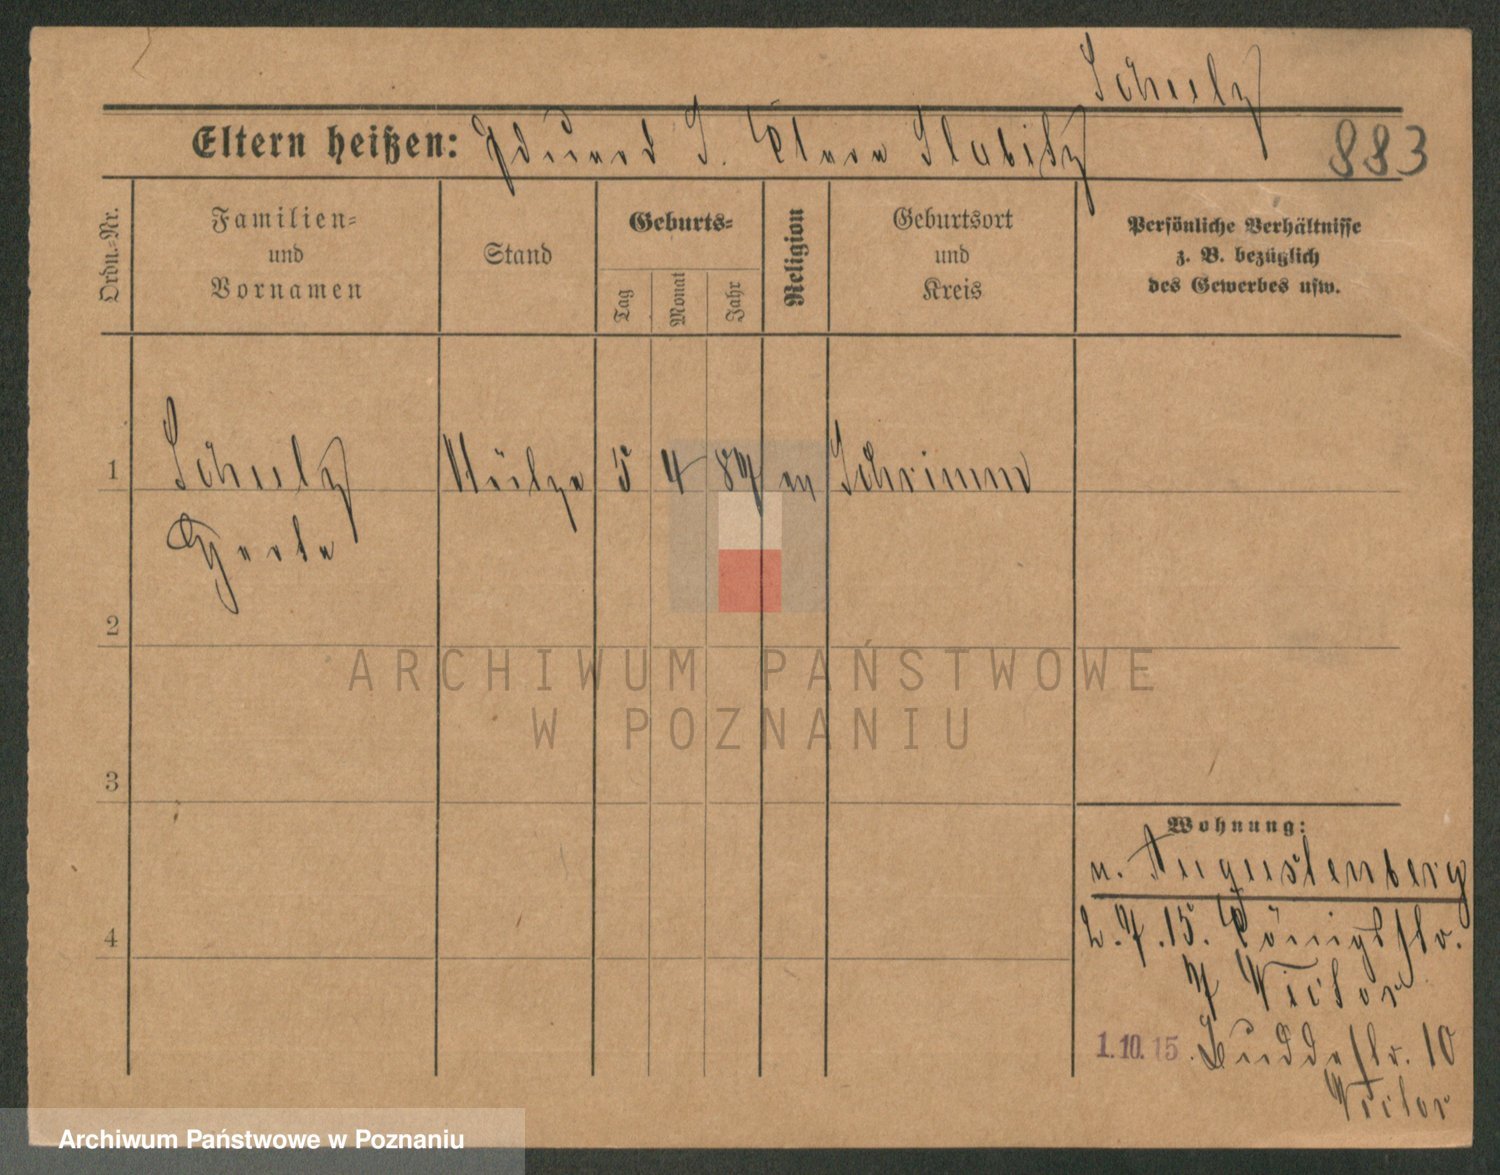 Schulz
Eltern heißen: Eduard S. Clara Slabitz
883
Ordn.-Nr.
Familien-
und
Vornamen
Stand
Geburts-
Tag
Monat
Jahr
Religion
Geburtsort
und
Kreis
Persönliche Verhältnisse
z. B. bezüglich
des Gewerbes usw.
1
Schulz
5 4 87 ev Schrimm
2
3
4
Wohnung:
n. Augustenberg
2.7.15. Königstr.
7 Victor
1.10.15. Buddestr. 10
Victor
ARCHIWUM PAŃSTWOWE
W POZNANIU
Archiwum Państwowe w Poznaniu